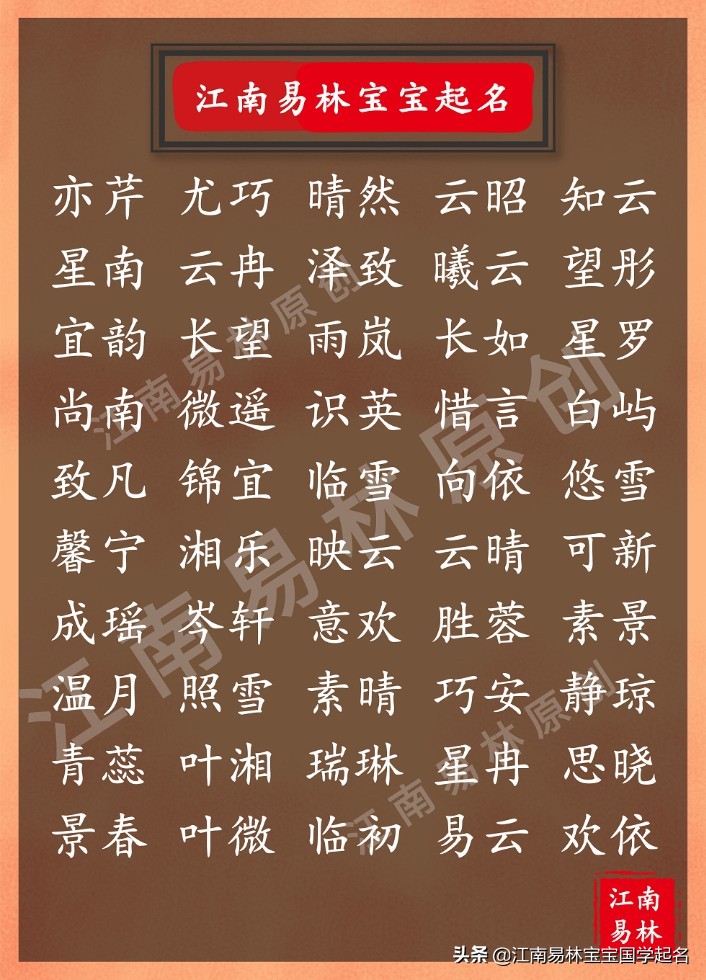 江南易林宝宝起名
亦芹 尤巧 晴然 云昭 知云
星南 云冉 泽致 曦云 望彤
宜韵 长望 雨岚 长如 星罗
尚南 微遥 识英 惜言 白屿
致凡 锦宜 临雪 向依 悠雪
馨宁 湘乐 映云 云晴 可新
成瑶 岑轩 意欢 胜蓉 素景
温月 照雪 素晴 巧安 静琼
青蕊 叶湘 瑞琳 星冉 思晓
景春 叶微 临初 易云 欢依
江南易林原创
江南易林原创
江南易林原创
江南
易林
头条 @江南易林宝宝国学起名